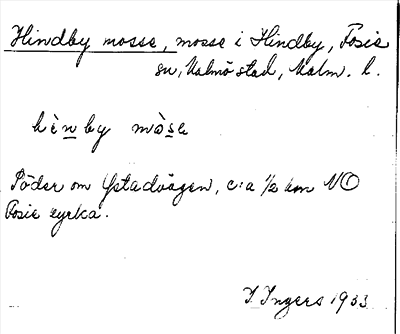 Hindby mosse, mosse i Hindby, Fosie
sn, Malmö stad, Malm. l.
hὲn̲by mòs̲e
Söder om Ystadvägen, c:a ½ km NO
Fosie kyrka.
I. Ingers 1933